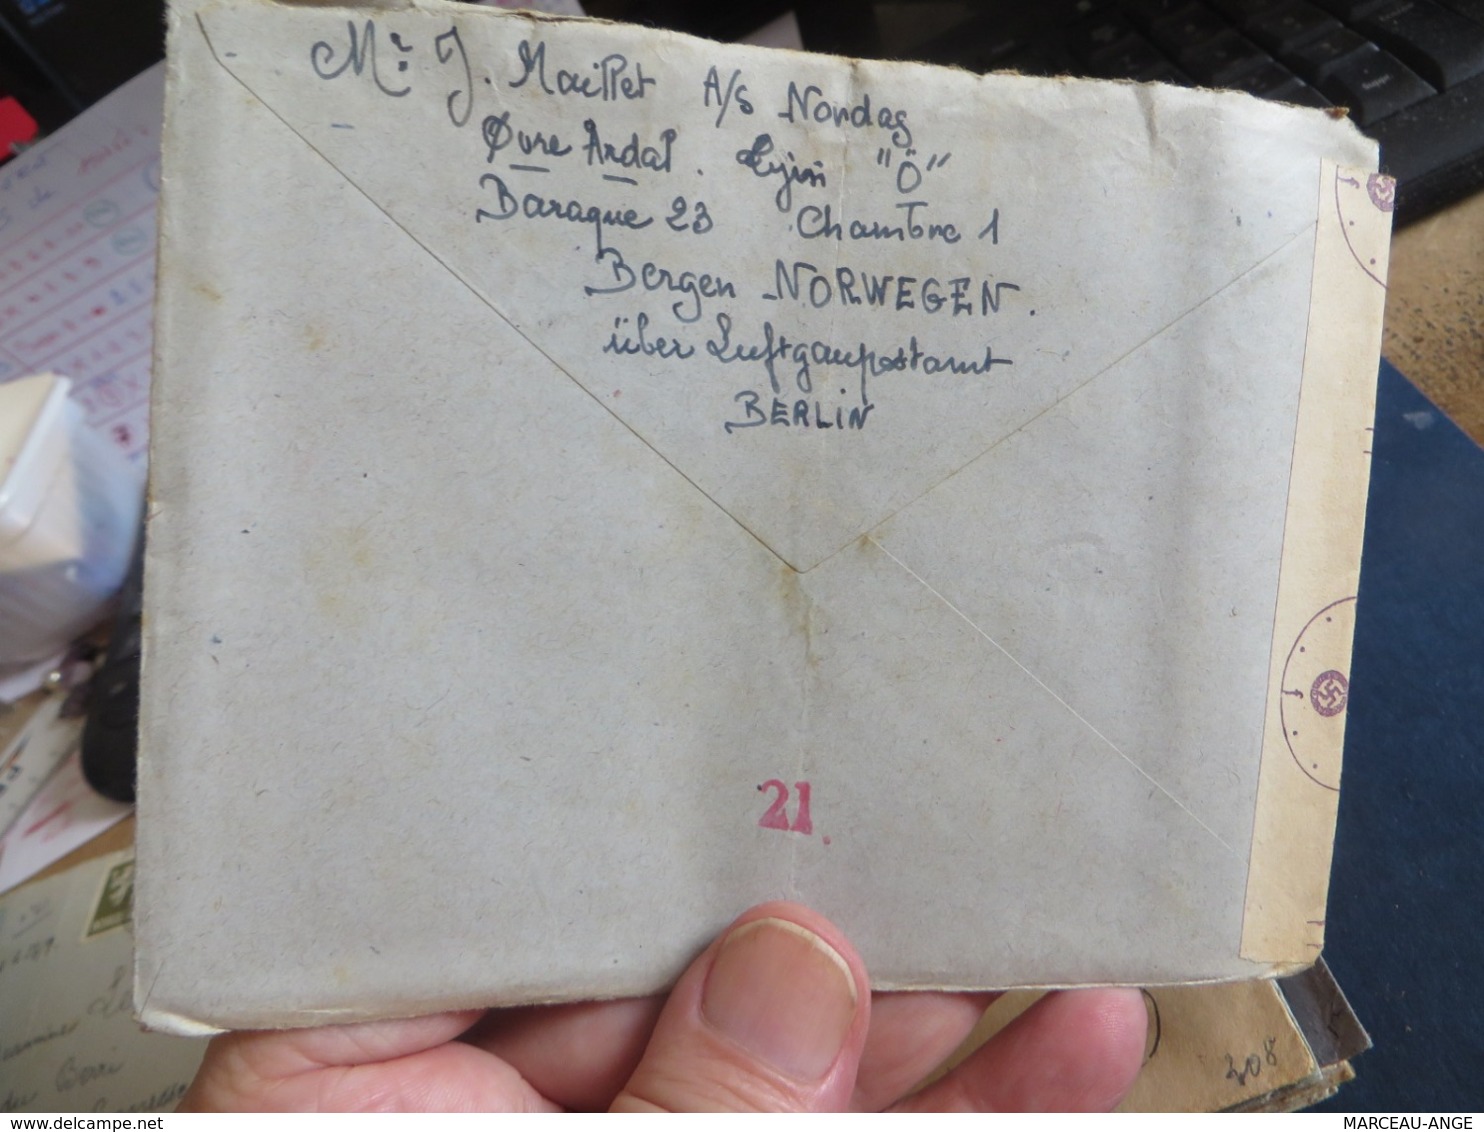 Mr: J. Maillet A/s Nordag
Øvre Ardal. "Ö"
Baraque 23 Chambre 1
Bergen - NORWEGEN.
über Luftgaupostamt
BERLIN
21.
208
MARCEAU-ANGE